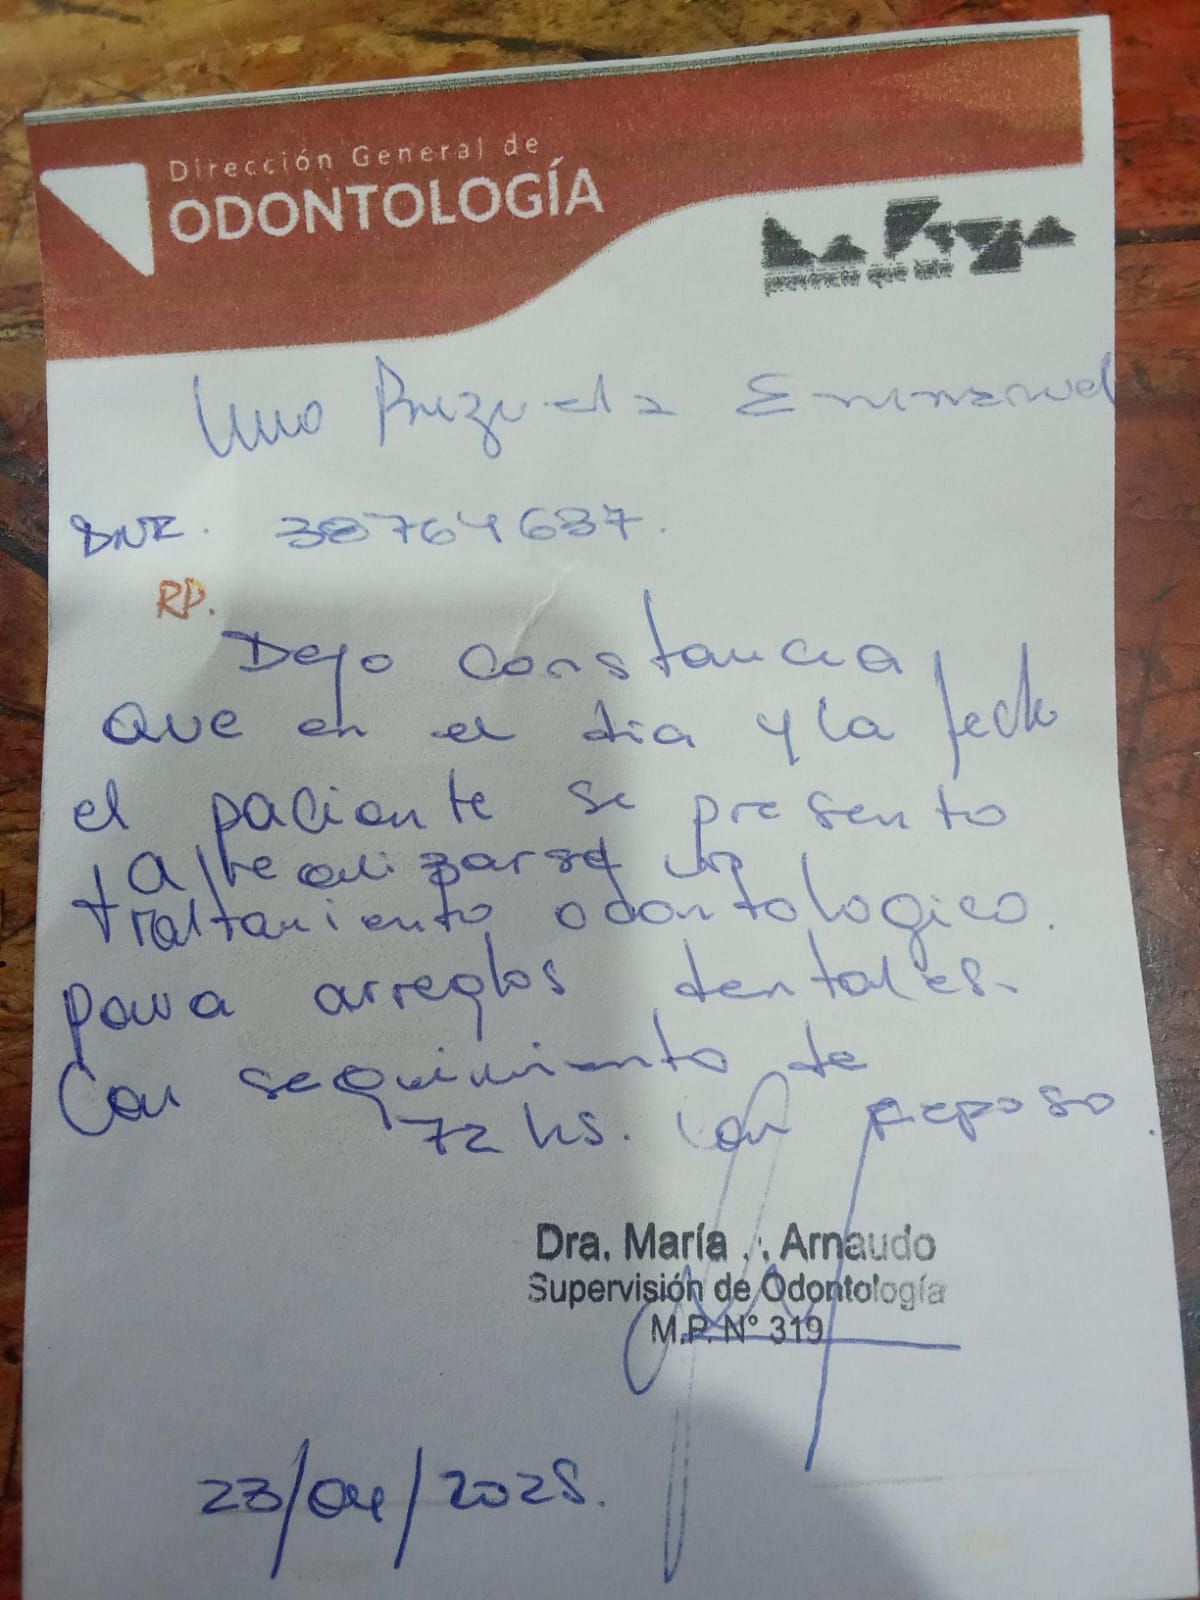 Dirección General de
ODONTOLOGÍA
La Rioja
provincia que late
Brizuela Emmanuel
DNI. 38764637.
RP.
Dejo constancia
que en el dia y la fecha
el paciente se presento
a realizarse un
tratamiento odontologico.
para arreglos dentales.
Con seguimiento de
72 hs. con reposo.
Dra. María Arnaudo
Supervisión de Odontología
M.P. N° 319
23/04/2025.